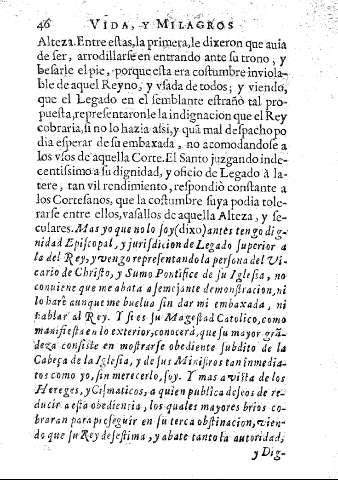 46 VIDA, Y MILAGROS
Alteza. Entre estas, la primera, le dixeron que auia
de ser, arrodillarse en entrando ante su trono, y
besarle el pie, porque esta era costumbre inviola-
ble de aquel Reyno, y vsada de todos; y viendo,
que el Legado en el semblante estrañò tal pro-
puesta, representaronle la indignacion que el Rey
cobraria, si no lo hazia assi, y quã mal despacho po
dia esperar de su embaxada, no acomodandose a
los vsos de aquella Corte. El Santo juzgando inde-
centissimo a su dignidad, y oficio de Legado à la-
tere, tan vil rendimiento, respondiò constante a
los Cortesanos, que la costumbre suya podia tole-
rarse entre ellos, vasallos de aquella Alteza, y se-
culares. Mas yo que no lo soy (dixo) antes tengo dig-
nidad Episcopal, y jurisdicion de Legado superior a
la del Rey, y vengo representando la persona del Vi-
cario de Christo, y Sumo Pontifice de su Iglesia, no
conuiene que me abata a semejante demonstracion, ni
lo harè aunque me buelua sin dar mi embaxada, ni
hablar al Rey. Y si es su Magestad Catolico, como
manifiesta en lo exterior, conocerà, que su mayor grã-
deza consiste en mostrarse obediente subdito de la
Cabeça de la Iglesia, y de sus Ministros tan inmedia-
tos como yo, sin merecerlo, soy. Y mas a vista de los
Hereges, y Cismaticos, a quien publica deseos de re-
ducir a esta obediencia, los quales mayores brios co-
braran para proseguir en su terca obstinacion, vien-
do que su Rey desestima, y abate tanto la autoridad,
y Dig-